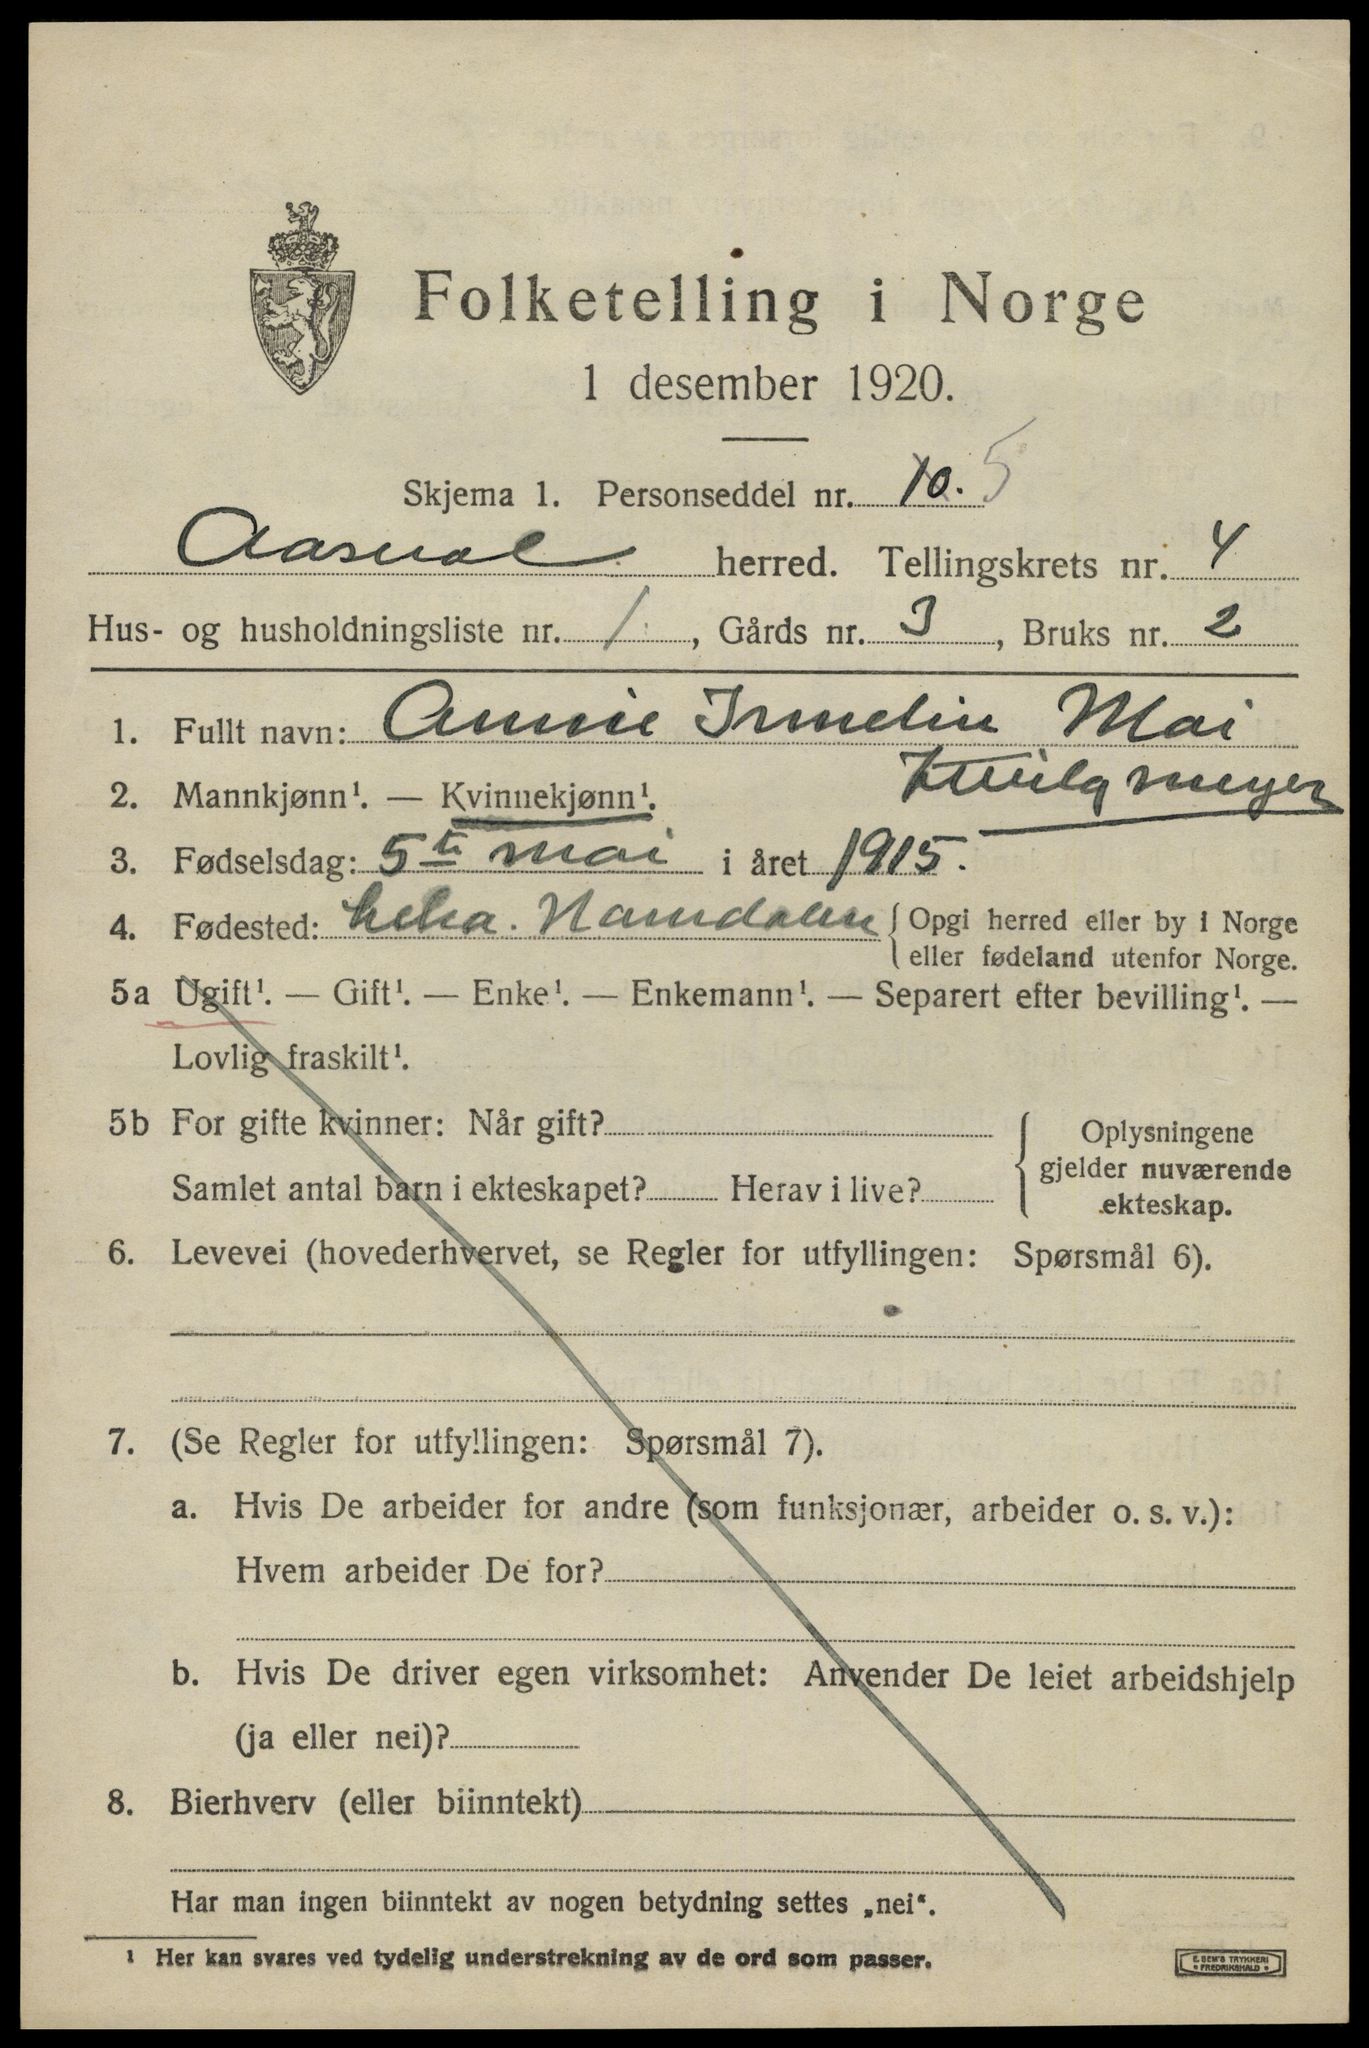 Folketelling i Norge
1 desember 1920.
Skjema 1. Personseddel nr. 10. 5
Aasnal herred. Tellingskrets nr. 4
Hus- og husholdningsliste nr. 1, Gårds nr. 3, Bruks nr. 2
1. Fullt navn: Annie Irmelin Mai
2. Mannkjønn¹. — Kvinnekjønn¹.
3. Fødselsdag: 5te mai i året 1915.
4. Fødested: Leka. Namdalen { Opgi herred eller by i Norge
eller fødeland utenfor Norge.
5a Ugift¹. — Gift¹. — Enke¹. — Enkemann¹. — Separert efter bevilling¹. —
Lovlig fraskilt¹.
5b For gifte kvinner: Når gift?
Samlet antal barn i ekteskapet? Herav i live?
Oplysningene
gjelder nuværende
ekteskap.
6. Levevei (hovederhvervet, se Regler for utfyllingen: Spørsmål 6).
7. (Se Regler for utfyllingen: Spørsmål 7).
a. Hvis De arbeider for andre (som funksjonær, arbeider o. s. v.):
Hvem arbeider De for?
b. Hvis De driver egen virksomhet: Anvender De leiet arbeidshjelp
(ja eller nei)?
8. Bierhverv (eller biinntekt)
Har man ingen biinntekt av nogen betydning settes „nei“.
¹ Her kan svares ved tydelig understrekning av de ord som passer.
E. SEM'S TRYKKERI
FREDRIKSHALD